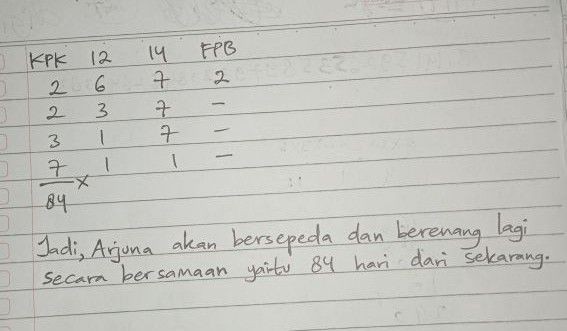 KPK 12 14 FPB
2 6 7 2
2 3 7 -
3 1 7 -
7 1 1 -
x
84
Jadi, Arjuna akan bersepeda dan berenang lagi
secara bersamaan yaitu 84 hari dari sekarang.